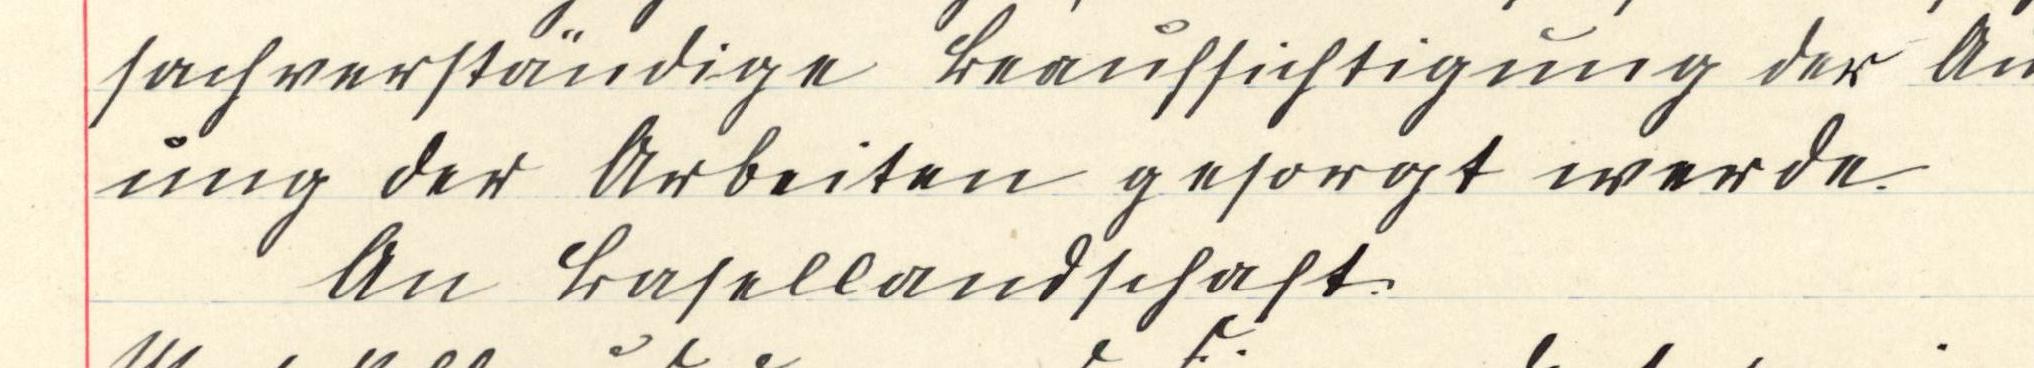 sachverständige Beaufsichtigung der
ung der Arbeiten gesorgt werde.
An Basellandschaft.